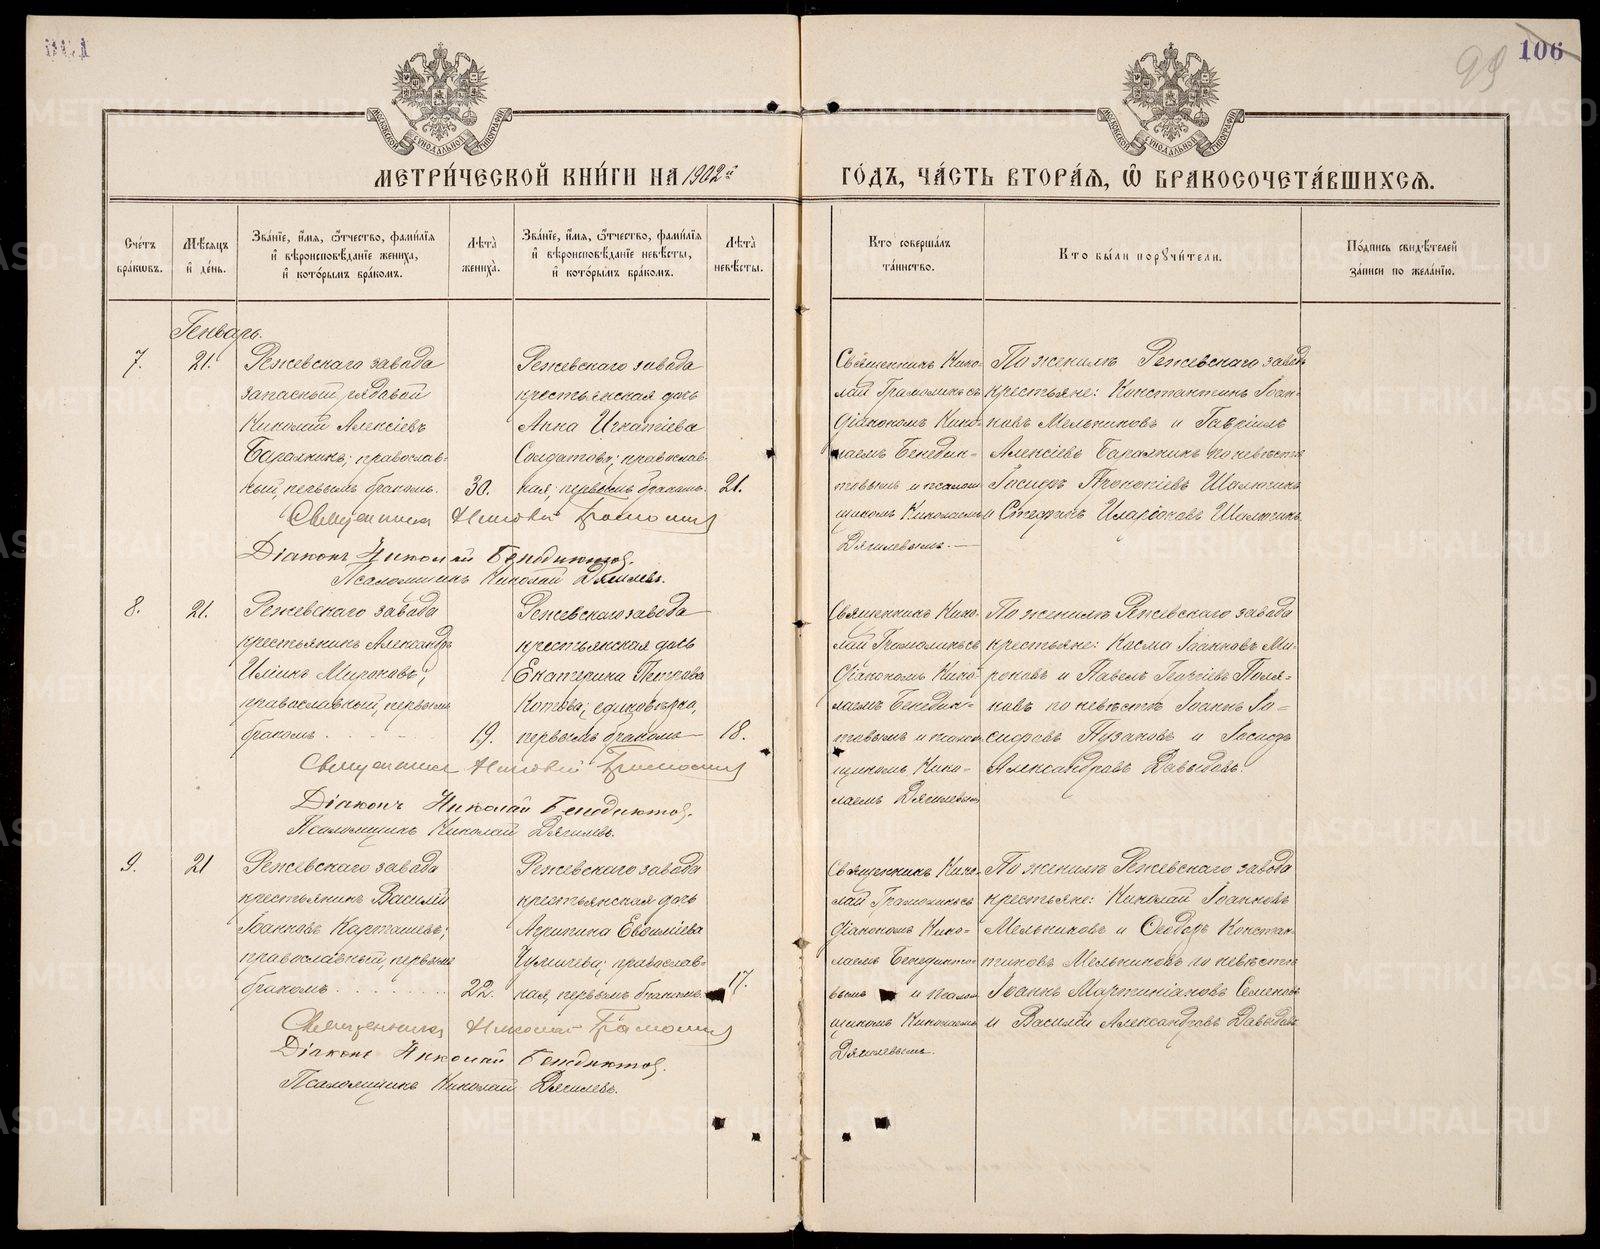 106
99
МОСКОВСКОЙ СѴНОДАЛЬНОЙ ТИПОГРАФІИ
МОСКОВСКОЙ СѴНОДАЛЬНОЙ ТИПОГРАФІИ
МЕТРИ́ЧЕСКОЙ КНИ́ГИ НА 1902й ГО́ДЪ, ЧА́СТЬ ВТОРА́Я, Ѡ҆ БРАКОСОЧЕТА́ВШИХСЯ.
Сче́тъ бра́ковъ.
Мѣ́сяцъ и҆ де́нь.
Зва́нїе, и҆́мя, ѻ҆́тчество, фами́лїя
и҆ вѣроисповѣ́данїе жениха̀,
и҆ кото́рымъ бра́комъ.
Лѣ́та жениха̀.
Зва́нїе, и҆́мя, ѻ҆́тчество, фами́лїя
и҆ вѣроисповѣ́данїе невѣ́сты,
и҆ кото́рымъ бра́комъ.
Лѣ́та невѣ́сты.
Кто̀ соверша́лъ
та́инство.
Кто̀ бы́ли порꙋчи́тели.
По́дпись свидѣ́телей
за́писи по жела́нїю.
Генварь.
7.
21.
Режевскаго завода
запасный рядовой
Николай Алексіевъ
Бараннинъ; православ-
ный, первымъ бракомъ.
30.
Режевскаго завода
крестьянская дочь
Анна Игнатіева
Солдатова; православ-
ная, первымъ бракомъ.
21.
Священникъ Нико-
лай Грамолинъ съ
діакономъ Нико-
лаемъ Бенедик-
товымъ и псалом-
щикомъ Николаемъ
Дягилевымъ.—
По женихѣ Режевскаго завода
крестьяне: Константинъ Іоан-
новъ Мельниковъ и Гавріилъ
Алексіевъ Бараннинъ по невѣстѣ
Іосифъ Прокопіевъ Шалюгинъ
и Стефанъ Иларіоновъ Шалюгинъ.
Священникъ Николай Грамолинъ
Діаконъ Николай Бенедиктов.
Псаломщикъ Николай Дягилевъ.
8.
21.
Режевскаго завода
крестьянинъ Александръ
Илiинъ Мироновъ;
православный, первымъ
бракомъ
19.
Режевскаго завода
крестьянская дочь
Екатерина Петрова
Котова; единовѣрка,
первымъ бракомъ
18.
Священникъ Нико-
лай Грамолинъ съ
діакономъ Нико-
лаемъ Бенедик-
товымъ и псалом-
щикомъ Нико-
лаемъ Дягилевымъ
По женихѣ Режевскаго завода
крестьяне: Косма Іоанновъ Ми-
роновъ и Павелъ Георгіевъ Поля-
ковъ по невѣстѣ Іоаннъ Іо-
сифовъ Пузановъ и Іосифъ
Александровъ Давыдовъ.
Священникъ Николай Грамолинъ
Діаконъ Николай Бенедиктов.
Псаломщикъ Николай Дягилевъ.
9.
21
Режевскаго завода
крестьянинъ Василій
Іоанновъ Карташевъ;
православный, первымъ
бракомъ
22.
Режевскаго завода
крестьянская дочь
Агрипина Евфиміева
Чушева; православ-
ная первымъ бракомъ
17.
Священникъ Нико-
лай Грамолинъ съ
діакономъ Нико-
лаемъ Бенедикто-
вымъ и псалом-
щикомъ Николаемъ
Дягилевымъ.
По женихѣ Режевскаго завода
крестьяне: Николай Іоанновъ
Мельниковъ и Ѳеодоръ Констан-
тиновъ Мельниковъ по невѣстѣ
Іоаннъ Мартиніановъ Семеновъ
и Василій Александровъ Давыдовъ
Священникъ Николай Грамолинъ
Діаконъ Николай Бенедиктов.
Псаломщикъ Николай Дягилевъ.
METRIKI.GASO-URAL.RU